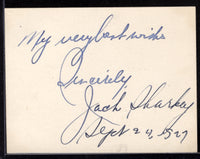 My very best wishes
Sincerely
Jack Sharkey
Sept 24, 1927